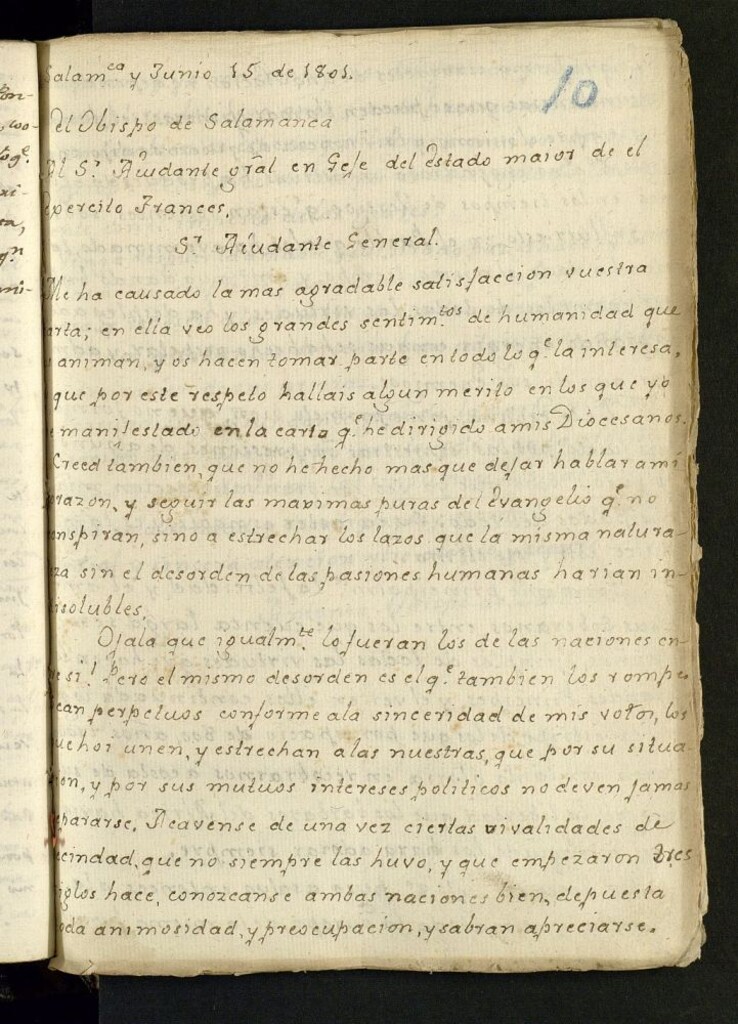 10
Salam.ca y Junio 15 de 1801.
El Obispo de Salamanca
Al S.r Aiudante gral en Gefe del estado maior de el
Exercito Frances.
S.r Aiudante General.
Me ha causado la mas agradable satisfaccion vuestra
arta; en ella veo los grandes sentim.tos de humanidad que
animan, y os hacen tomar parte en todo lo q.e la interesa,
que por este respeto hallais algun merito en los que yo
e manifestado en la carta q.e he dirigido a mis Diocesanos.
Creed tambien, que no he hecho mas que dejar hablar a mi
orazon, y seguir las maximas puras del Evangelio q.e no
onspiran, sino a estrechar los lazos que la misma natura-
za sin el desorden de las pasiones humanas harian in-
isolubles.
Ojala que igualm.te lo fueran los de las naciones en-
e si! Pero el mismo desorden es el q.e tambien los rompe.
ean perpetuos conforme a la sinceridad de mis votos, los
uchoi unen, y estrechan a las nuestras, que por su situa-
on, y por sus mutuos intereses politicos no deven jamas
epararse. Acavense de una vez ciertas rivalidades de
ecindad, que no siempre las huvo, y que empezaron tres
iglos hace, conozcanse ambas naciones bien, depuesta
oda animosidad, y preocupacion, y sabran apreciarse.